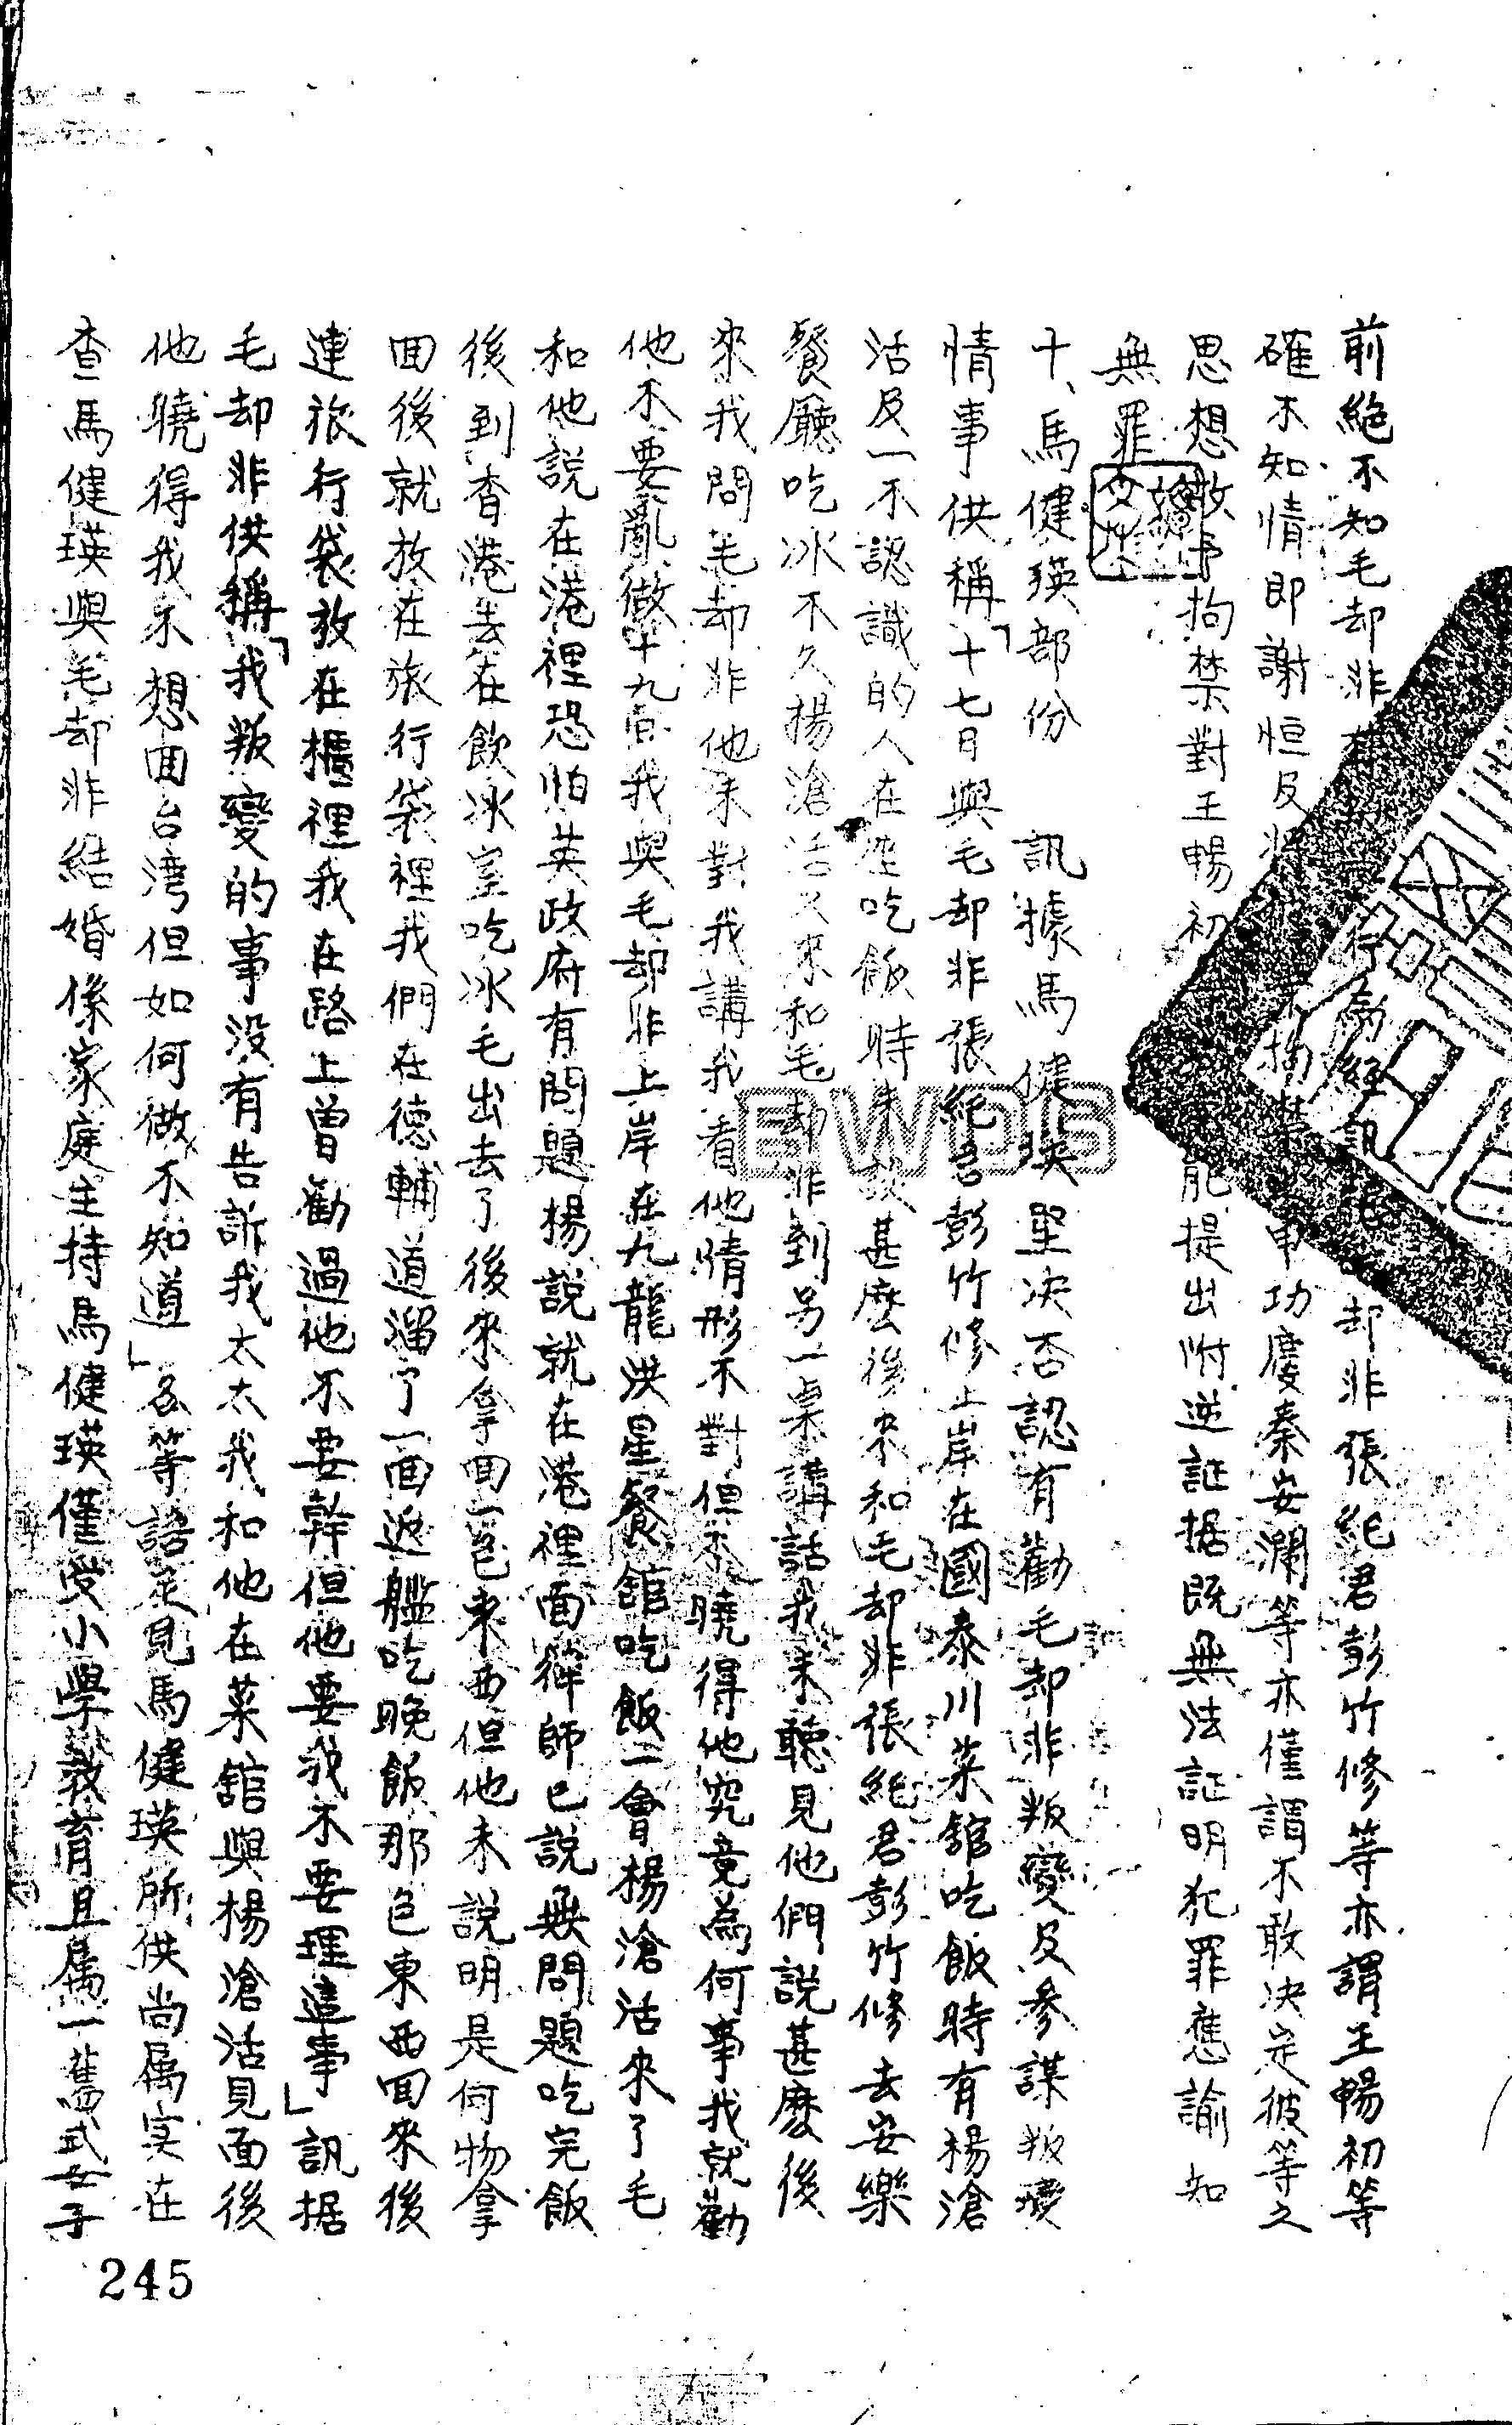 前絶不知毛却非有行為經訊毛却非張絕君彭竹修等亦謂王暢初等
確不知情即謝恒反將拘禁申功慶秦安瀾等亦僅謂不敢决定彼等之
思想故予拘禁對王暢初能提出附逆証据既無法証明犯罪應諭知
無罪
十、馬健瑛部份　訊據馬健瑛堅决否認有勸毛却非叛變及參謀叛變
情事供稱「十七日與毛却非張絕君彭竹修上岸在國泰川菜舘吃飯時有楊滄
活及一不認識的人在座吃飯時未談甚麽後來和毛却非張絕君彭竹修去安樂
餐廳吃冰不久楊滄活又來和毛却非到另一桌講話我未聽見他們説甚麽後
來我問毛却非他未對我講我看他情形不對但不曉得他究竟為何事我就勸
他不要亂做十九日我與毛却非上岸在九龍洪星餐舘吃飯一會楊滄活來了毛
和他説在港裡恐怕英政府有問題楊説就在港裡面律師已説無問題吃完飯
後到香港去在飲冰室吃冰毛出去了後來拿囬一包東西但他未説明是何物拿
囬後就放在旅行袋裡我們在德輔道溜了一囬返艦吃晚飯那包東西囬來後
連旅行袋放在櫃裡我在路上曽勸過他不要幹但他要我不要理這事」訊据
毛却非供稱「我叛變的事没有告訴我太太我和他在菜舘與楊滄活見面後
他曉得我不想囬台湾但如何做不知道」各等語足見馬健瑛所供尚属实在
查馬健瑛與毛却非結婚係家庭主持馬健瑛僅受小學教育且属一舊式女子
245
BWDS